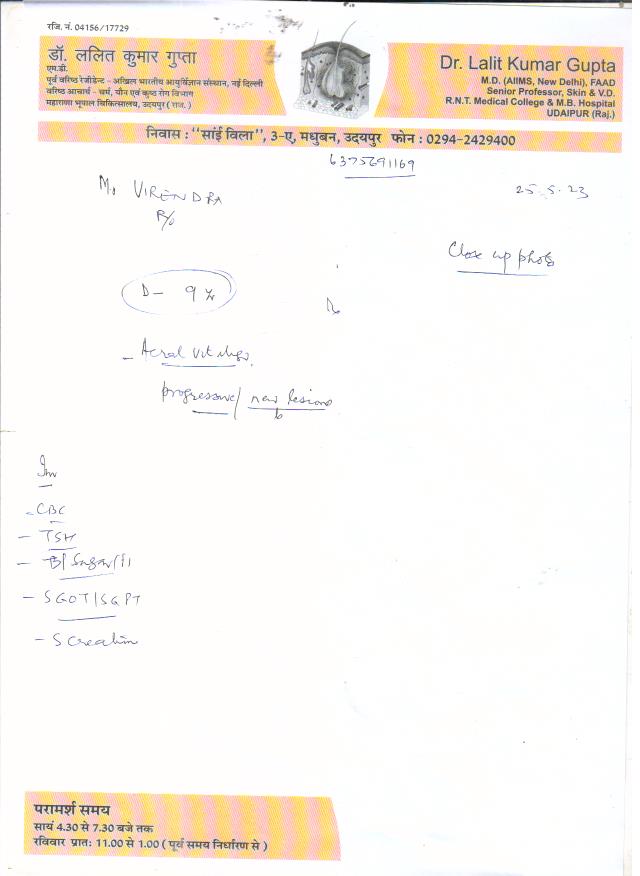 रजि. नं. 04156/17729
डॉ. ललित कुमार गुप्ता
एम.डी.
पूर्व वरिष्ठ रेजीडेन्ट - अखिल भारतीय आयुर्विज्ञान संस्थान, नई दिल्ली
वरिष्ठ आचार्य - चर्म, यौन एवं कुष्ठ रोग विभाग
महाराणा भूपाल चिकित्सालय, उदयपुर ( राज. )
Dr. Lalit Kumar Gupta
M.D. (AIIMS, New Delhi), FAAD
Senior Professor, Skin & V.D.
R.N.T. Medical College & M.B. Hospital
UDAIPUR (Raj.)
निवास : "सांई विला", 3-ए, मधुबन, उदयपुर फोन : 0294-2429400
6375691169
25.5.23
Mr VIRENDRA
R/o
Close up photo
D - 9
- Acral vitiligo.
progressive / new lesions
Inv
- CBC
- TSH
- B/Sugar/
- SGOT/SGPT
- S Creatinin
परामर्श समय
सायं 4.30 से 7.30 बजे तक
रविवार प्रात: 11.00 से 1.00 ( पूर्व समय निर्धारण से )